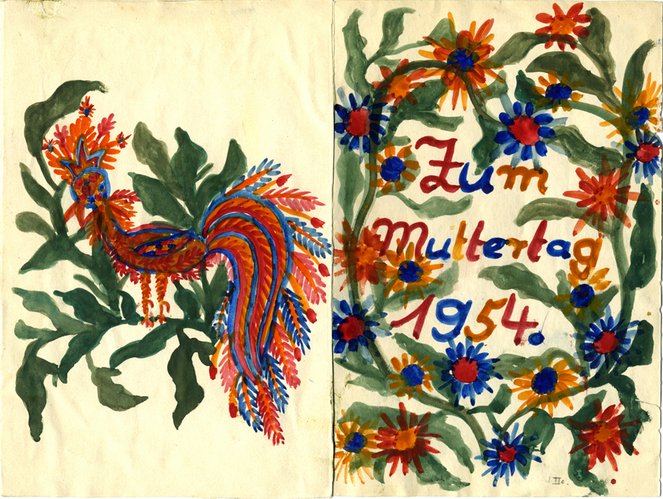 Zum
Muttertag
1954.